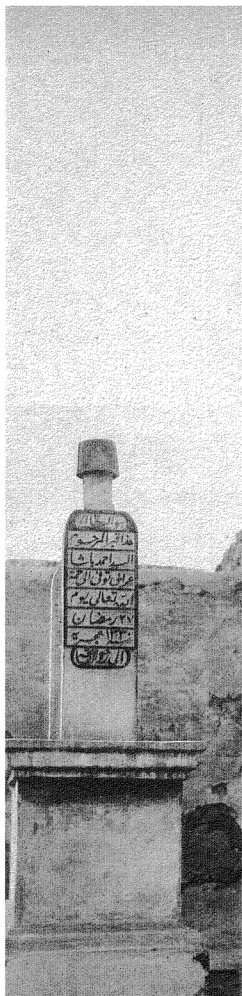 هذا قبر المرحوم
السيد احمد باشا
عرابى توفى الى رحمة
الله تعالى يوم
٢٧ رمضان
سنة ١٣٢٩ هجرية